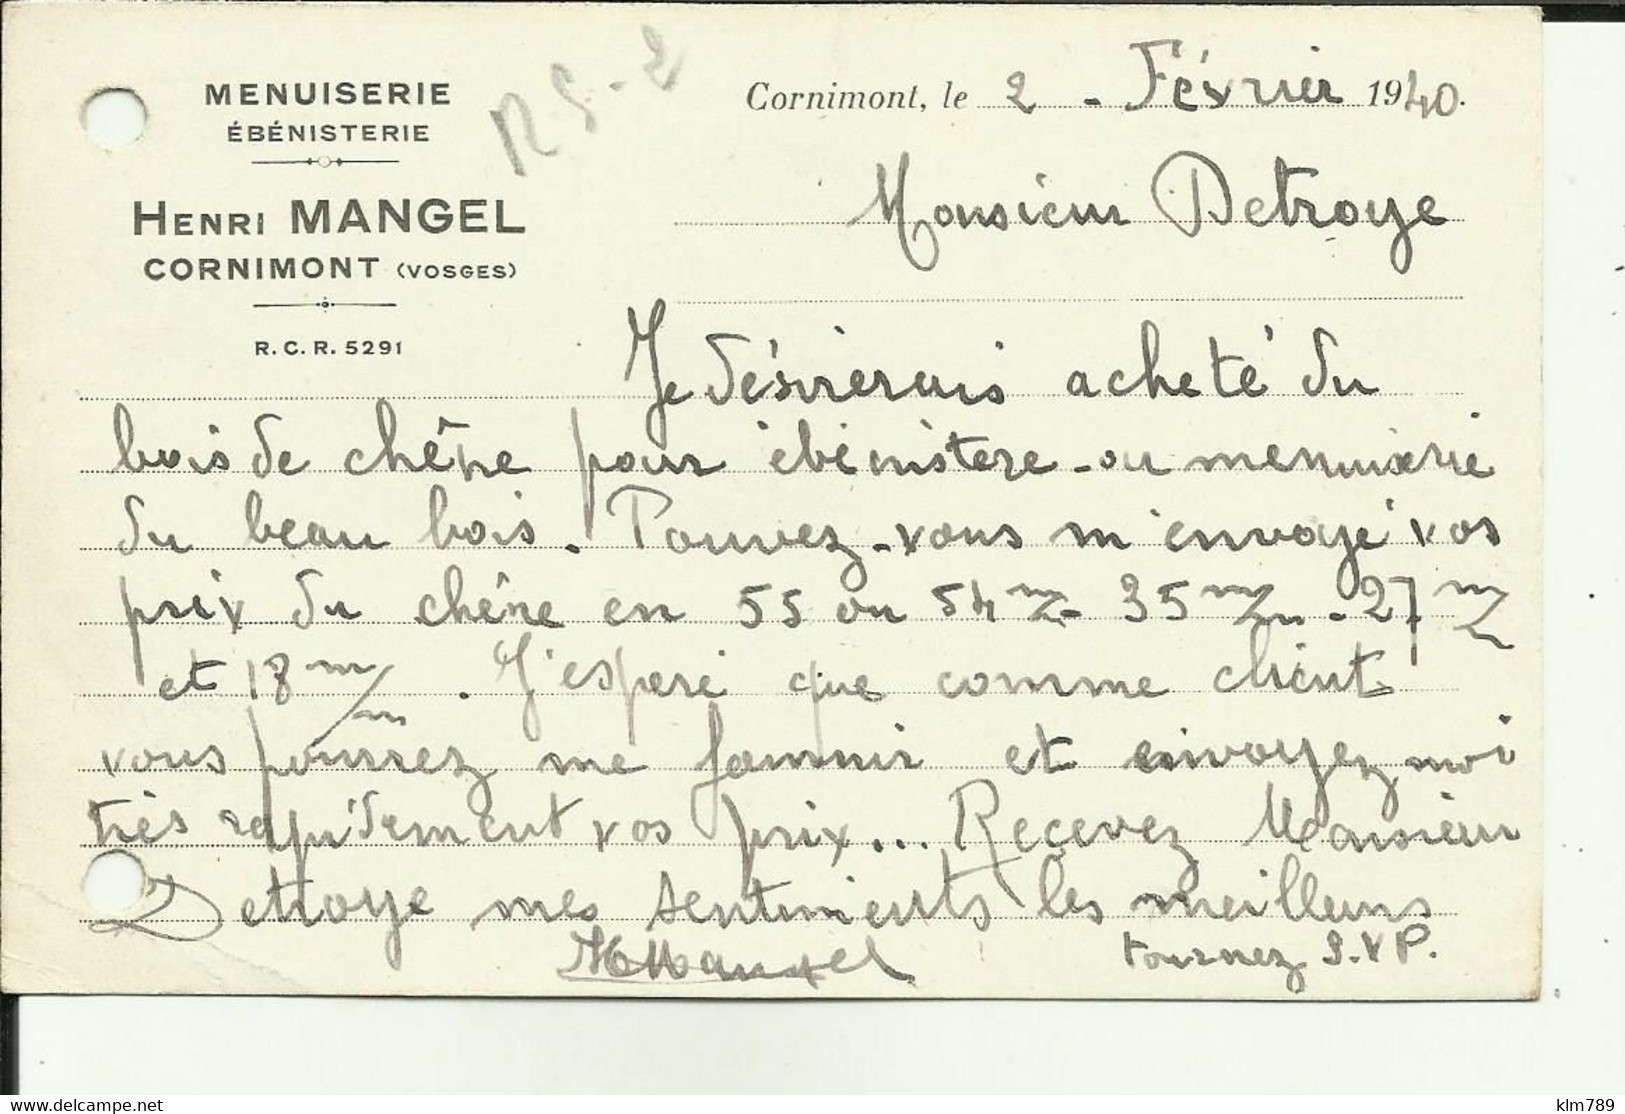 MENUISERIE
ÉBÉNISTERIE
HENRI MANGEL
CORNIMONT (VOSGES)
R.C.R. 5291
R5-2
Cornimont, le 2 - Février 1940.
Monsieur Detroye
Je désirerais acheté du
bois de chêne pour ébénistere - ou menuiserie
du beau bois. Pouvez-vous m'envoyé vos
prix du chêne en 55 ou 54 m/m - 35 m/m - 27 m/m
et 18 m/m. J'esperé que comme client
vous pourrez me fournir et envoyez moi
très rapidement vos prix... Recevez Monsieur
Detroye mes sentiments les meilleurs
HMangel
tournez S.V P.
Delcampe.net
klm789